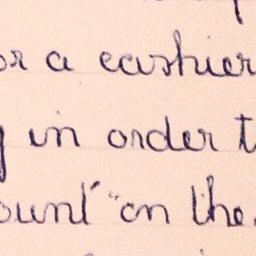 or a cashier
in order t
ount" on the